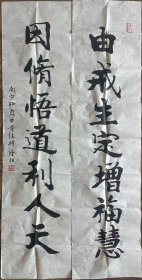 由戒生定增福慧
因脩悟道利人天